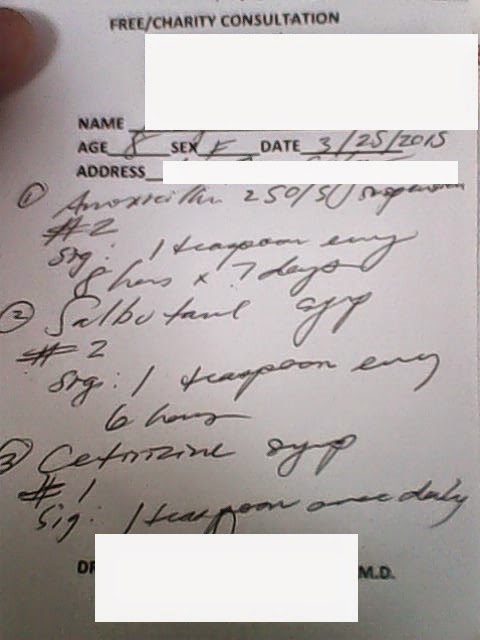 FREE/CHARITY CONSULTATION
NAME
AGE 8 SEX F DATE 3/25/2015
ADDRESS
① Amoxicillin 250/5 suspension
#2
Sig: 1 teaspoon every
8 hours x 7 days
② Salbutamol syrup
#2
Sig: 1 teaspoon every
6 hours
③ Cetirizine syrup
#1
Sig: 1 teaspoon once daily
DR
M.D.